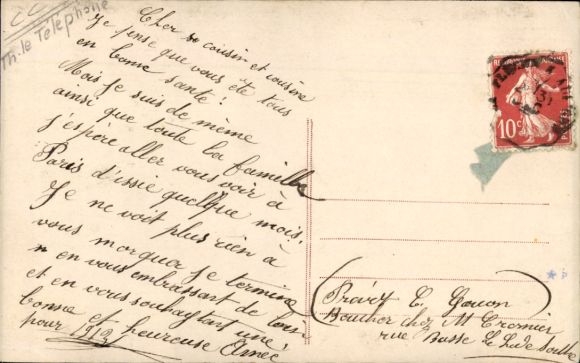 Th: le Téléphone
Cher cousin et cousine
Je pense que vous éte tous
en bonne santé!
Moi je suis de même
ainsi que toute la famille
j'espère aller vous voir à
Paris d'issie quelque mois.
Je ne voit plus rien à
vous marqua je termine
n en vous embrassant de
et en vous souhaytant une
bonne et heureuse Année
pour 1912
10c
Prévy E.
Boucher chez M
rue Basse